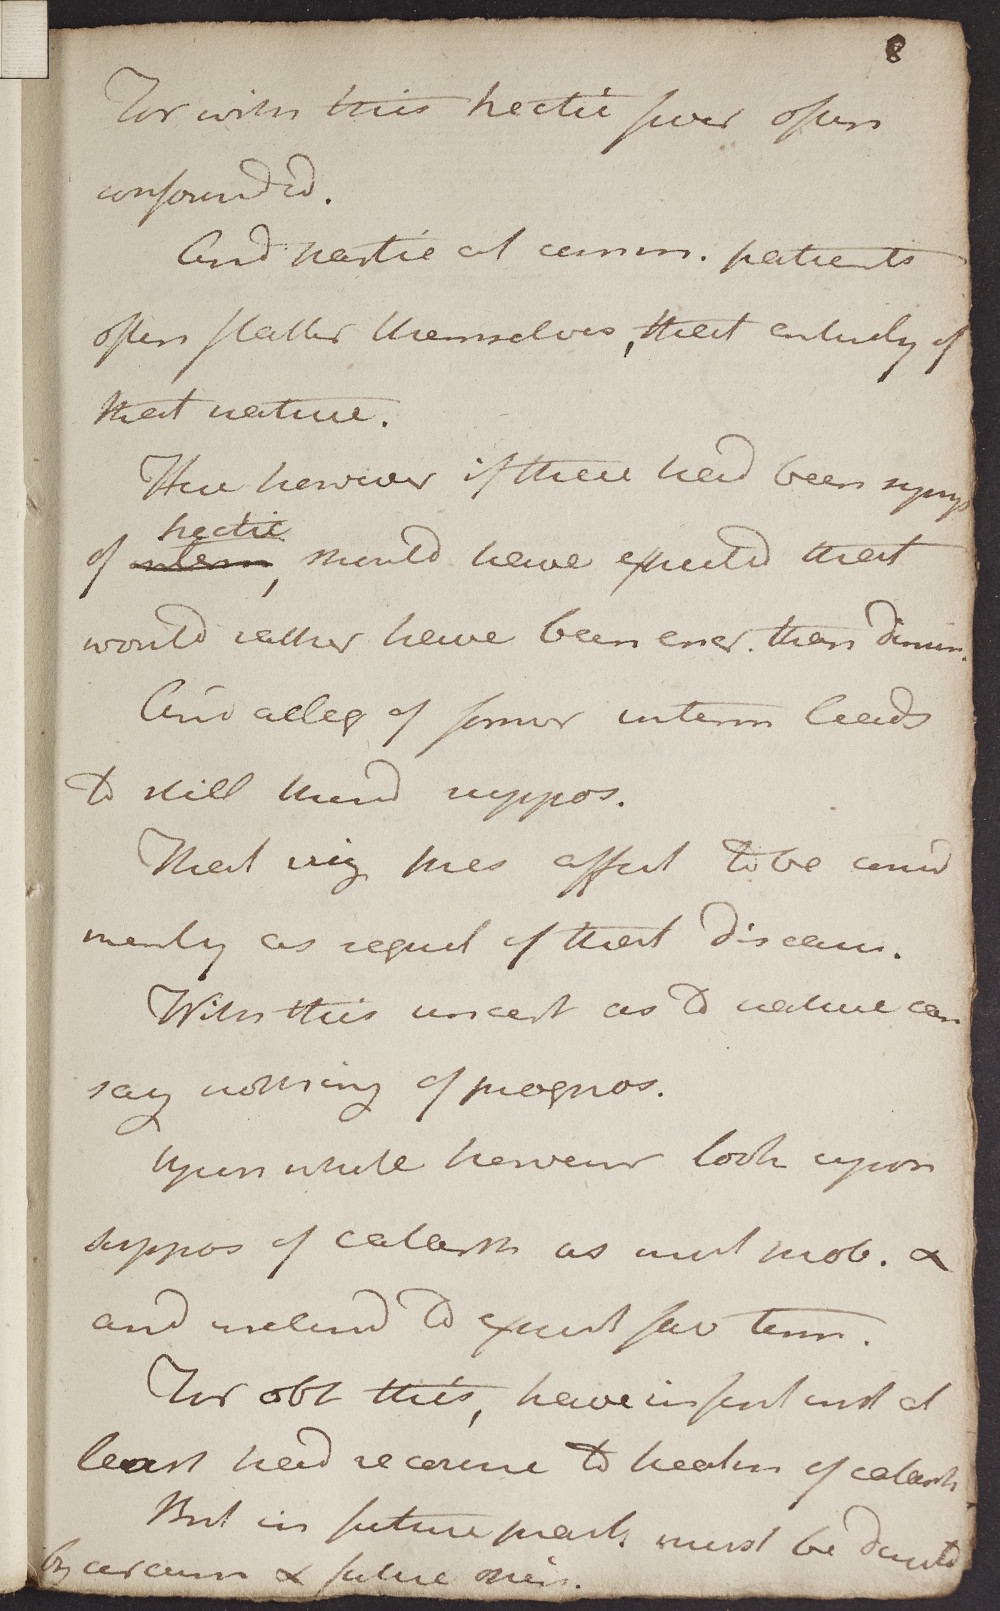 8
For with this hectic fever often
confounded.
And hectic at comm. patients
often flatter themselves, that entirely of
that nature.
Here however if there had been symp
hectic
of interm, should have expected that
would rather have been encr. than dimin.
And alleg of former interm leads
to still third suppos.
That viz pres affect to be consid
merely as sequel of that disease.
With this uncert as to nature can
say nothing of prognos.
Upon whole however look upon
suppos of catarrh as most prob. &
and inclined to expect fav term.
For obt this, have in first inst at
least had recourse to healing of catarrh
But in future pract. must be directed
by circum & future